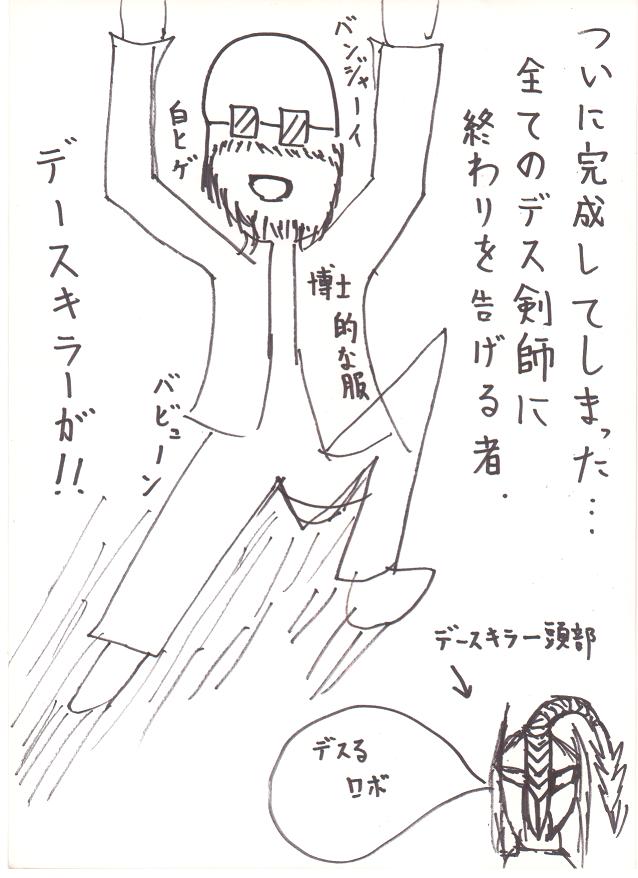 ついに完成してしまった…
全てのデス剣師に
終わりを告げる者.
バンジャーイ
白ヒゲ
博士的な服
デースキラーが!!
バビューン
デースキラー頭部
デスる
ロボ